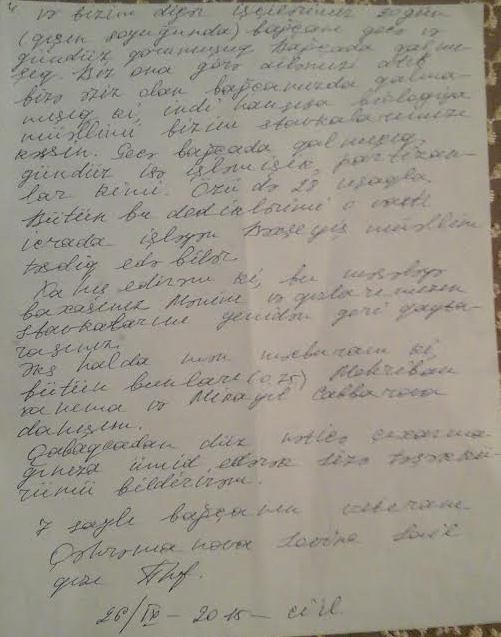 və bizim digər işçilərimiz soyuğun
(qışın soyuğunda) bağçanı gecə və
gündüz qorumuşuq Bağçada qalmı-
şıq. Biz ona görə ailəmizi atıb
bizə əziz olan bağçamızda qalma-
mışıq ki, indi hansısa biologiya
müəllimi bizim ştatkalarımızı
kəssin. Gecə bağçada qalmışıq,
gündüz isə işləmişik partizan-
lar kimi. Özü də 28 uşaqla.
Bütün bu dediklərimi o vaxtı
icrada işləyən müəllim
təsdiq edə bilər.
Xahiş edirəm ki, bu məsələyə
baxasınız Mənim və qızlarımızın
ştatkalarını yenidən geri qayta-
rasınız.
Əks halda mən məcburam ki,
bütün bunları (0,75) Mehriban
xanıma və Mikayıl Cabbarova
danışım.
Qabaqcadan düz nəticə çıxarma-
ğınıza ümid edərək sizə təşəkkü-
rümü bildirirəm.
7 saylı bağçanın veteranı
Qəhrəmanova
qızı
26/IX - 2015 - ci il